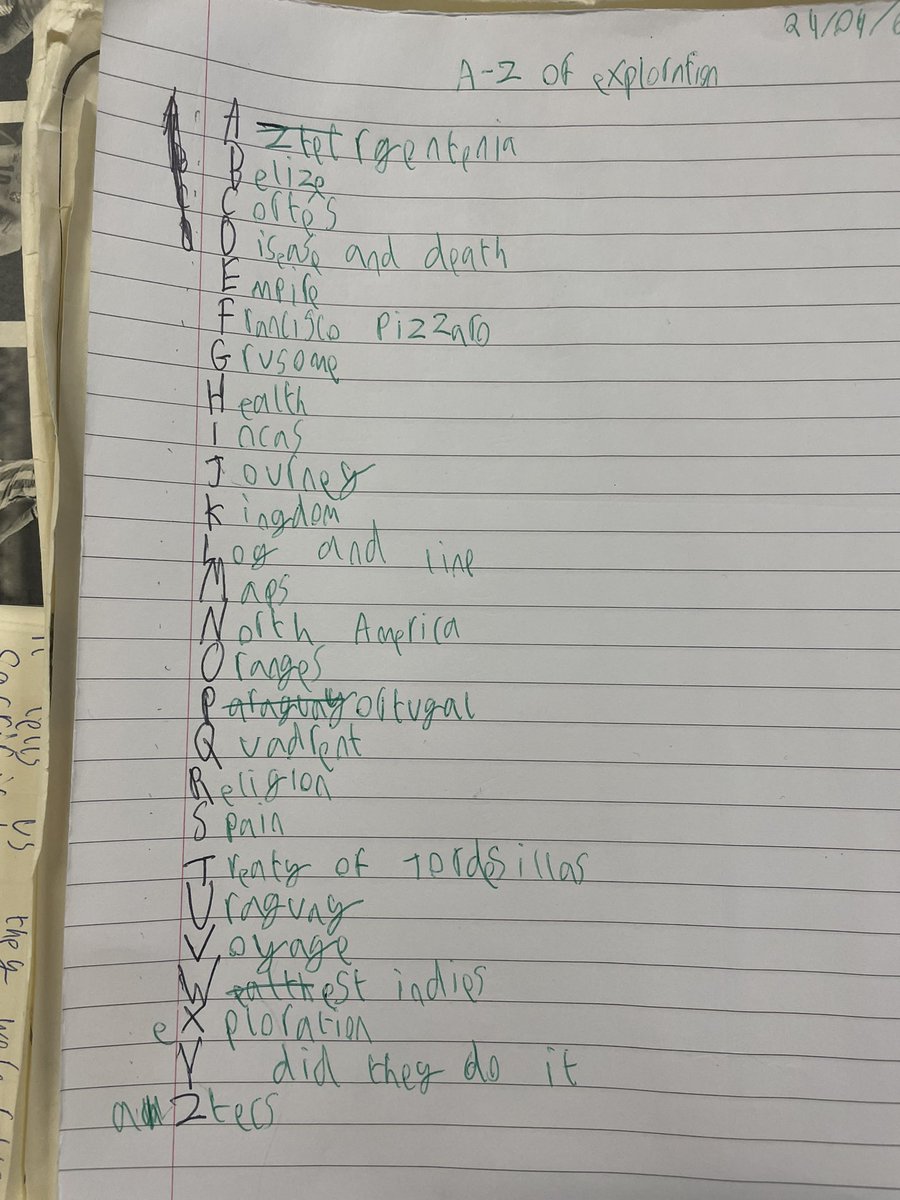 24/04/
A-Z of exploration
A Ztet rgentenia
Belize
Cortes
Disease and death
Empire
Francisco Pizzaro
Grusome
Health
Incas
Journey
Kingdom
Log and line
Maps
North America
Oranges
Paraguay ortugal
Quadrent
Religion
Spain
Treaty of Tordesillas
Uraguay
Voyage
Wealth est indies
eXploration
Y did they do it
aZtecs